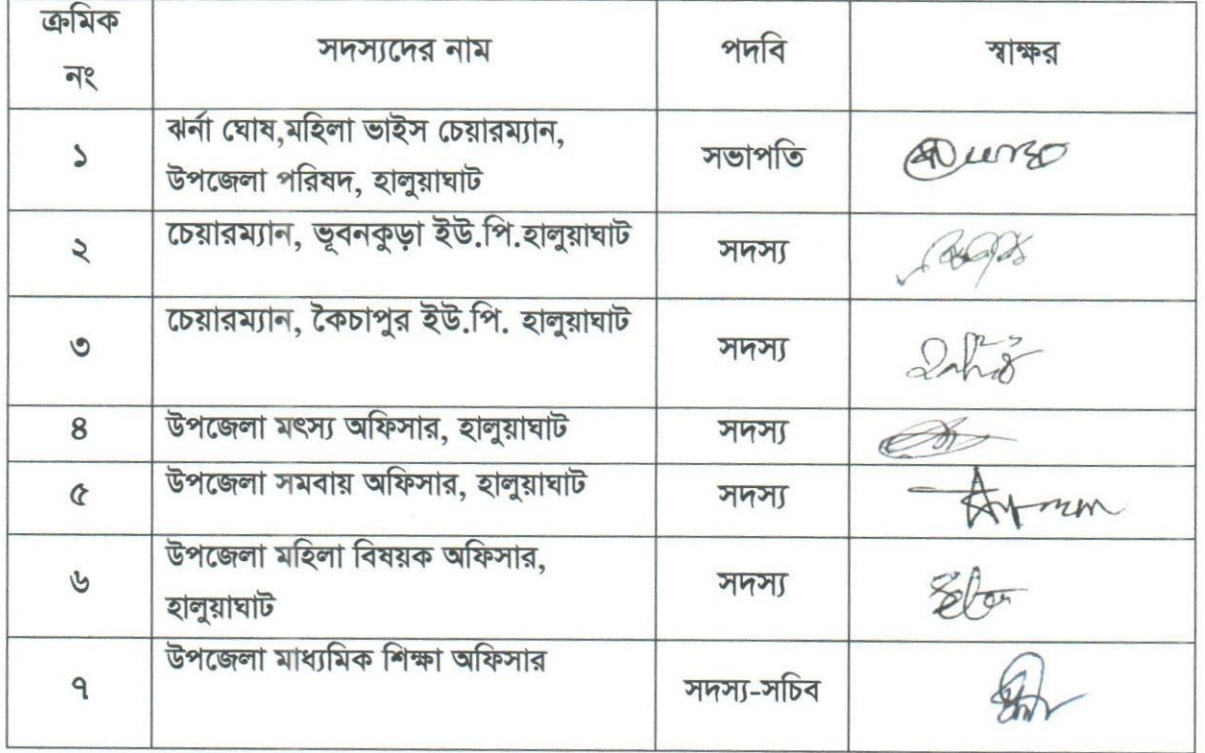 ক্রমিক নং সদস্যদের নাম পদবি স্বাক্ষর
১ ঝর্না ঘোষ,মহিলা ভাইস চেয়ারম্যান, সভাপতি
উপজেলা পরিষদ, হালুয়াঘাট
২ চেয়ারম্যান, ভূবনকুড়া ইউ.পি.হালুয়াঘাট সদস্য
৩ চেয়ারম্যান, কৈচাপুর ইউ.পি. হালুয়াঘাট সদস্য
৪ উপজেলা মৎস্য অফিসার, হালুয়াঘাট সদস্য
৫ উপজেলা সমবায় অফিসার, হালুয়াঘাট সদস্য
৬ উপজেলা মহিলা বিষয়ক অফিসার, সদস্য
হালুয়াঘাট
৭ উপজেলা মাধ্যমিক শিক্ষা অফিসার সদস্য-সচিব